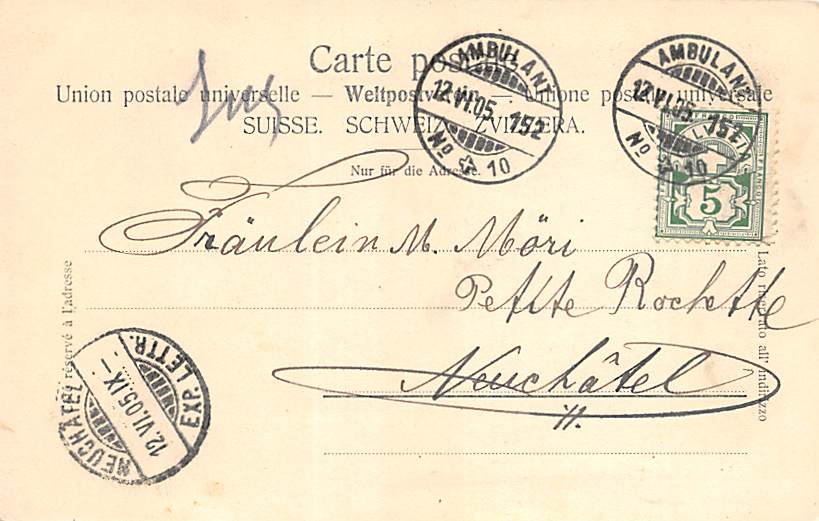 Carte postale
Union postale universelle — Weltpostverein — Unione postale universale
SUISSE. SCHWEIZ. ZVIZZERA.
Nur für die Adresse.
AMBULANT
12.VI.05. 152
No 10
AMBULANT
12.VI.05. 152
No 10
HELVETIA
FRANCO
5
Fräulein M. Möri
Petite Rochette
Neuchâtel
Côté réservé à l'adresse
Lato riservato all'indirizzo
NEUCHATEL
12.VI.05.IX–
EXP. LETTR.